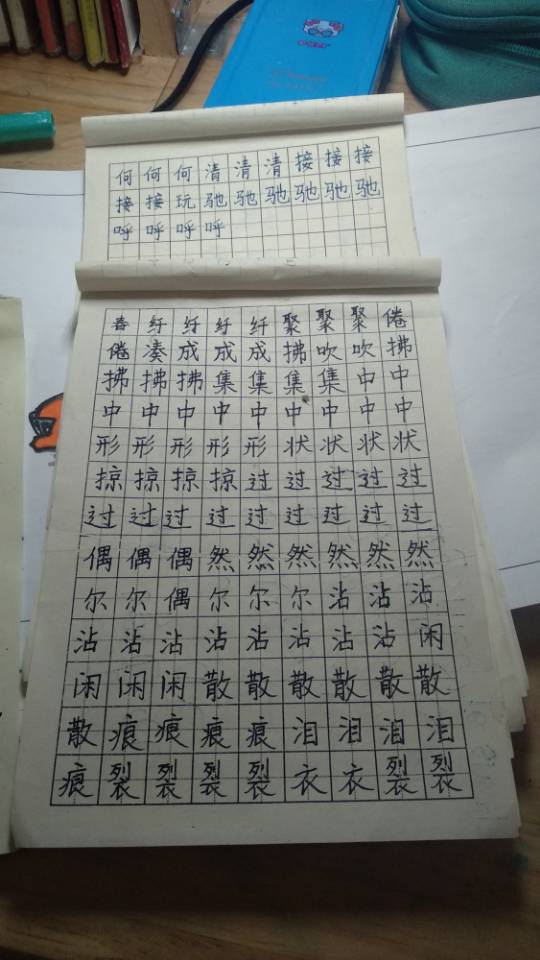 何何何清清清接接接
接接玩驰驰驰驰驰驰
呼呼呼呼
春纤纤纤纤聚聚聚倦
倦凑成成成拂吹吹拂
拂拂拂集集集集中中
中中中中中中中中中
形形形形形状状状状
掠掠掠掠过过过过过
过过过过过过过过过
偶偶偶然然然然然然
尔尔偶尔尔尔沾沾沾
沾沾沾沾沾沾沾沾闲
闲闲闲散散散散散散
散痕痕痕痕泪泪泪泪
痕裂裂裂裂衣衣裂裂